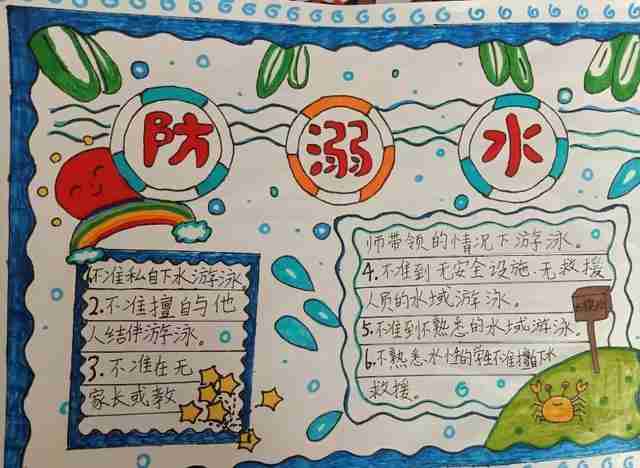 防溺水
1.不准私自下水游泳
2.不准擅自与他
人结伴游泳。
3.不准在无
家长或教
师带领的情况下游泳。
4.不准到无安全设施、无救援
人员的水域游泳。
5.不准到不熟悉的水域游泳。
6.不熟悉水性的学生不准擅自下水
救援。